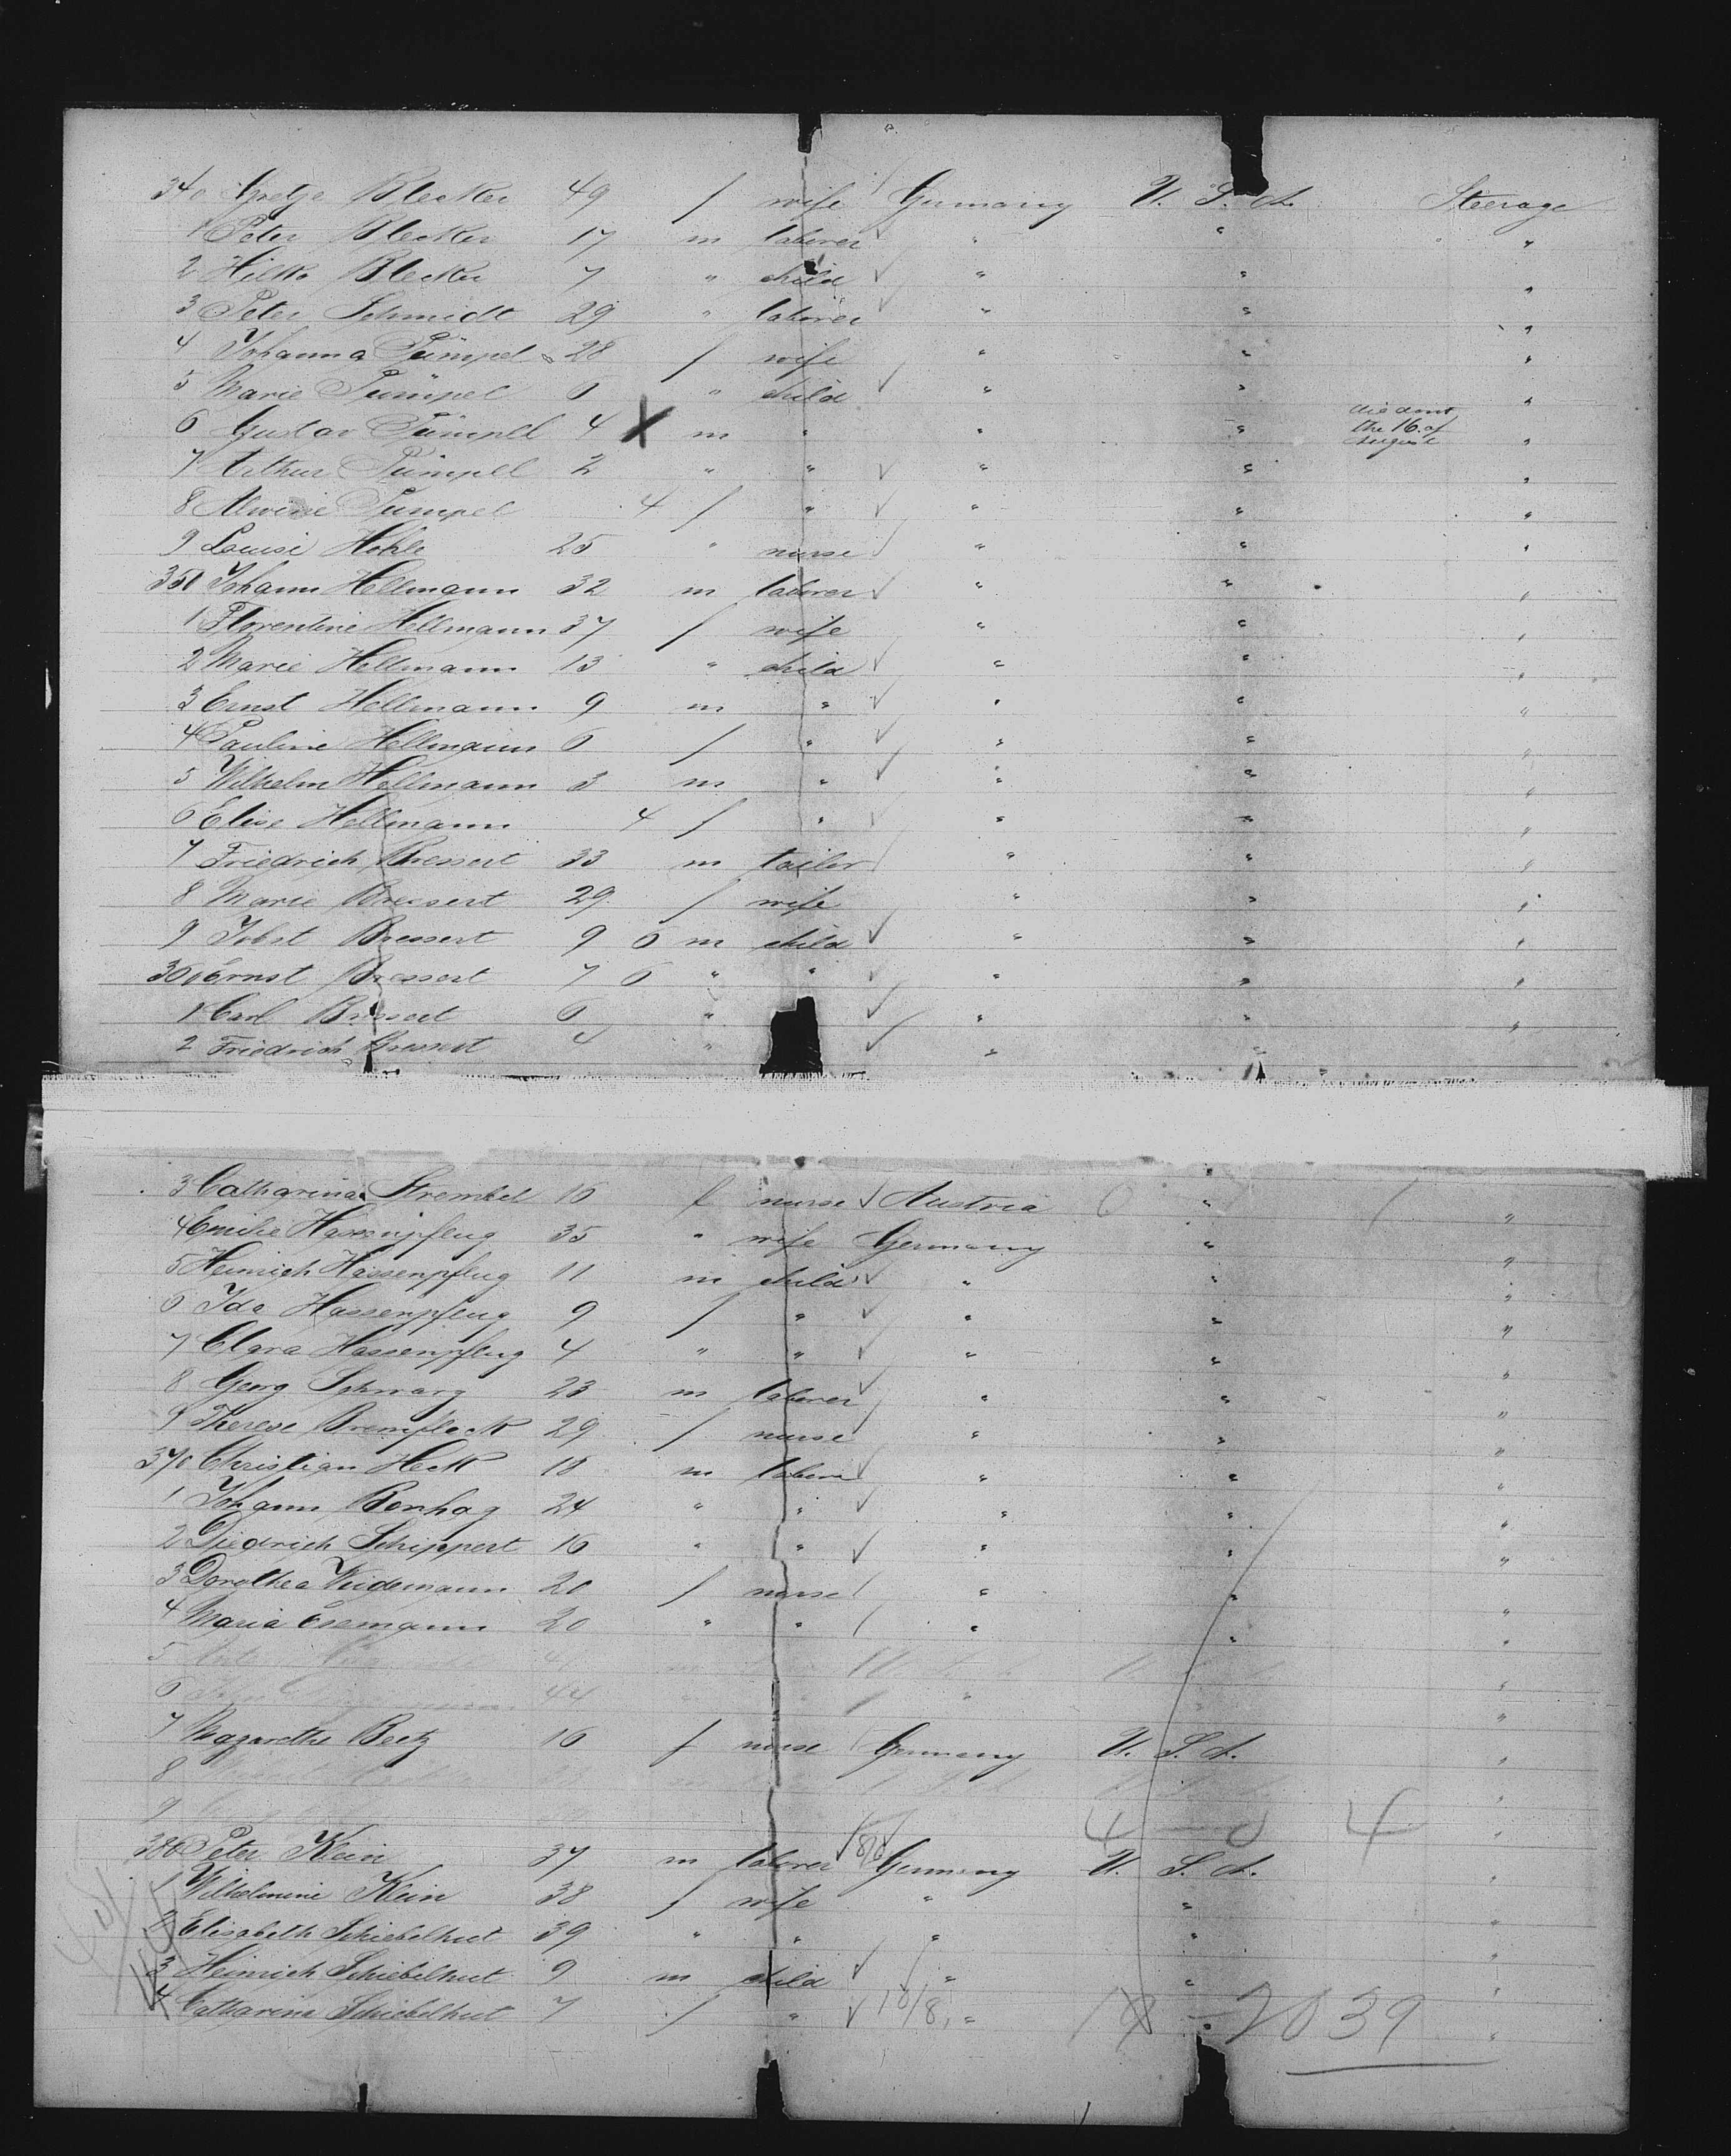 340 Gretje Blecker 49 f wife Germany U. S. A. Steerage
1 Peter Blecker 17 m laborer " " "
2 Hilko Blecker 7 " child " " "
3 Peter Schmidt 29 " laborer " " "
4 Johanna Pümpel 28 f wife " " "
5 Marie Pümpel 6 " child " " "
6 Gustav Pümpell 4 X m " " " the 16. of August "
7 Arthur Pümpell 2 " " " " "
8 Alwine Pümpel 4 f " " " "
9 Louise Hohle 25 " nurse " " "
350 Johann Hellmann 32 m laborer " " "
1 Florentine Hellmann 37 f wife " " "
2 Marie Hellmann 13 " child " " "
3 Ernst Hellmann 9 m " " " "
4 Pauline Hellmann 6 f " " " "
5 Wilhelm Hellmann 3 m " " " "
6 Elise Hellmann 4 f " " " "
7 Friedrich Bressert 33 m tailor " " "
8 Marie Bressert 29 f wife " " "
9 Jobst Bressert 9 6 m child " " "
360 Ernst Bressert 7 6 " " " " "
1 Carl Bressert 6 " " " "
2 Friedrich Bressert 4 " " "
3 Catharina Strembel 16 f nurse Austria " "
4 Emilie Hassenpflug 35 " wife Germany " "
5 Heinrich Hassenpflug 11 m child " " "
6 Ida Hassenpflug 9 f " " " "
7 Clara Hassenpflug 4 " " " " "
8 Georg Schwarz 23 m laborer " " "
9 Therese 29 f nurse " " "
370 Christian Heck 18 m laborer " " "
1 Johann Bonhag 24 " " " " "
2 Diedrich Schippert 16 " " " " "
3 Dorothea Weidemann 20 f nurse " " "
4 Maria 20 " " " " "
5
6 44 "
7 Magarethe Beetz 16 f nurse Germany U. S. A. "
8
9
4 4
380 Peter Klein 37 m laborer Germany U. S. A. "
1 Wilhelmine Klein 38 f wife " " "
2 Elisabeth Schiebelhut 39 " " " " "
3 Heinrich Schiebelhut 9 m child " " "
4 Catharina Schiebelhut 7 f " 10/8 " 2039 "